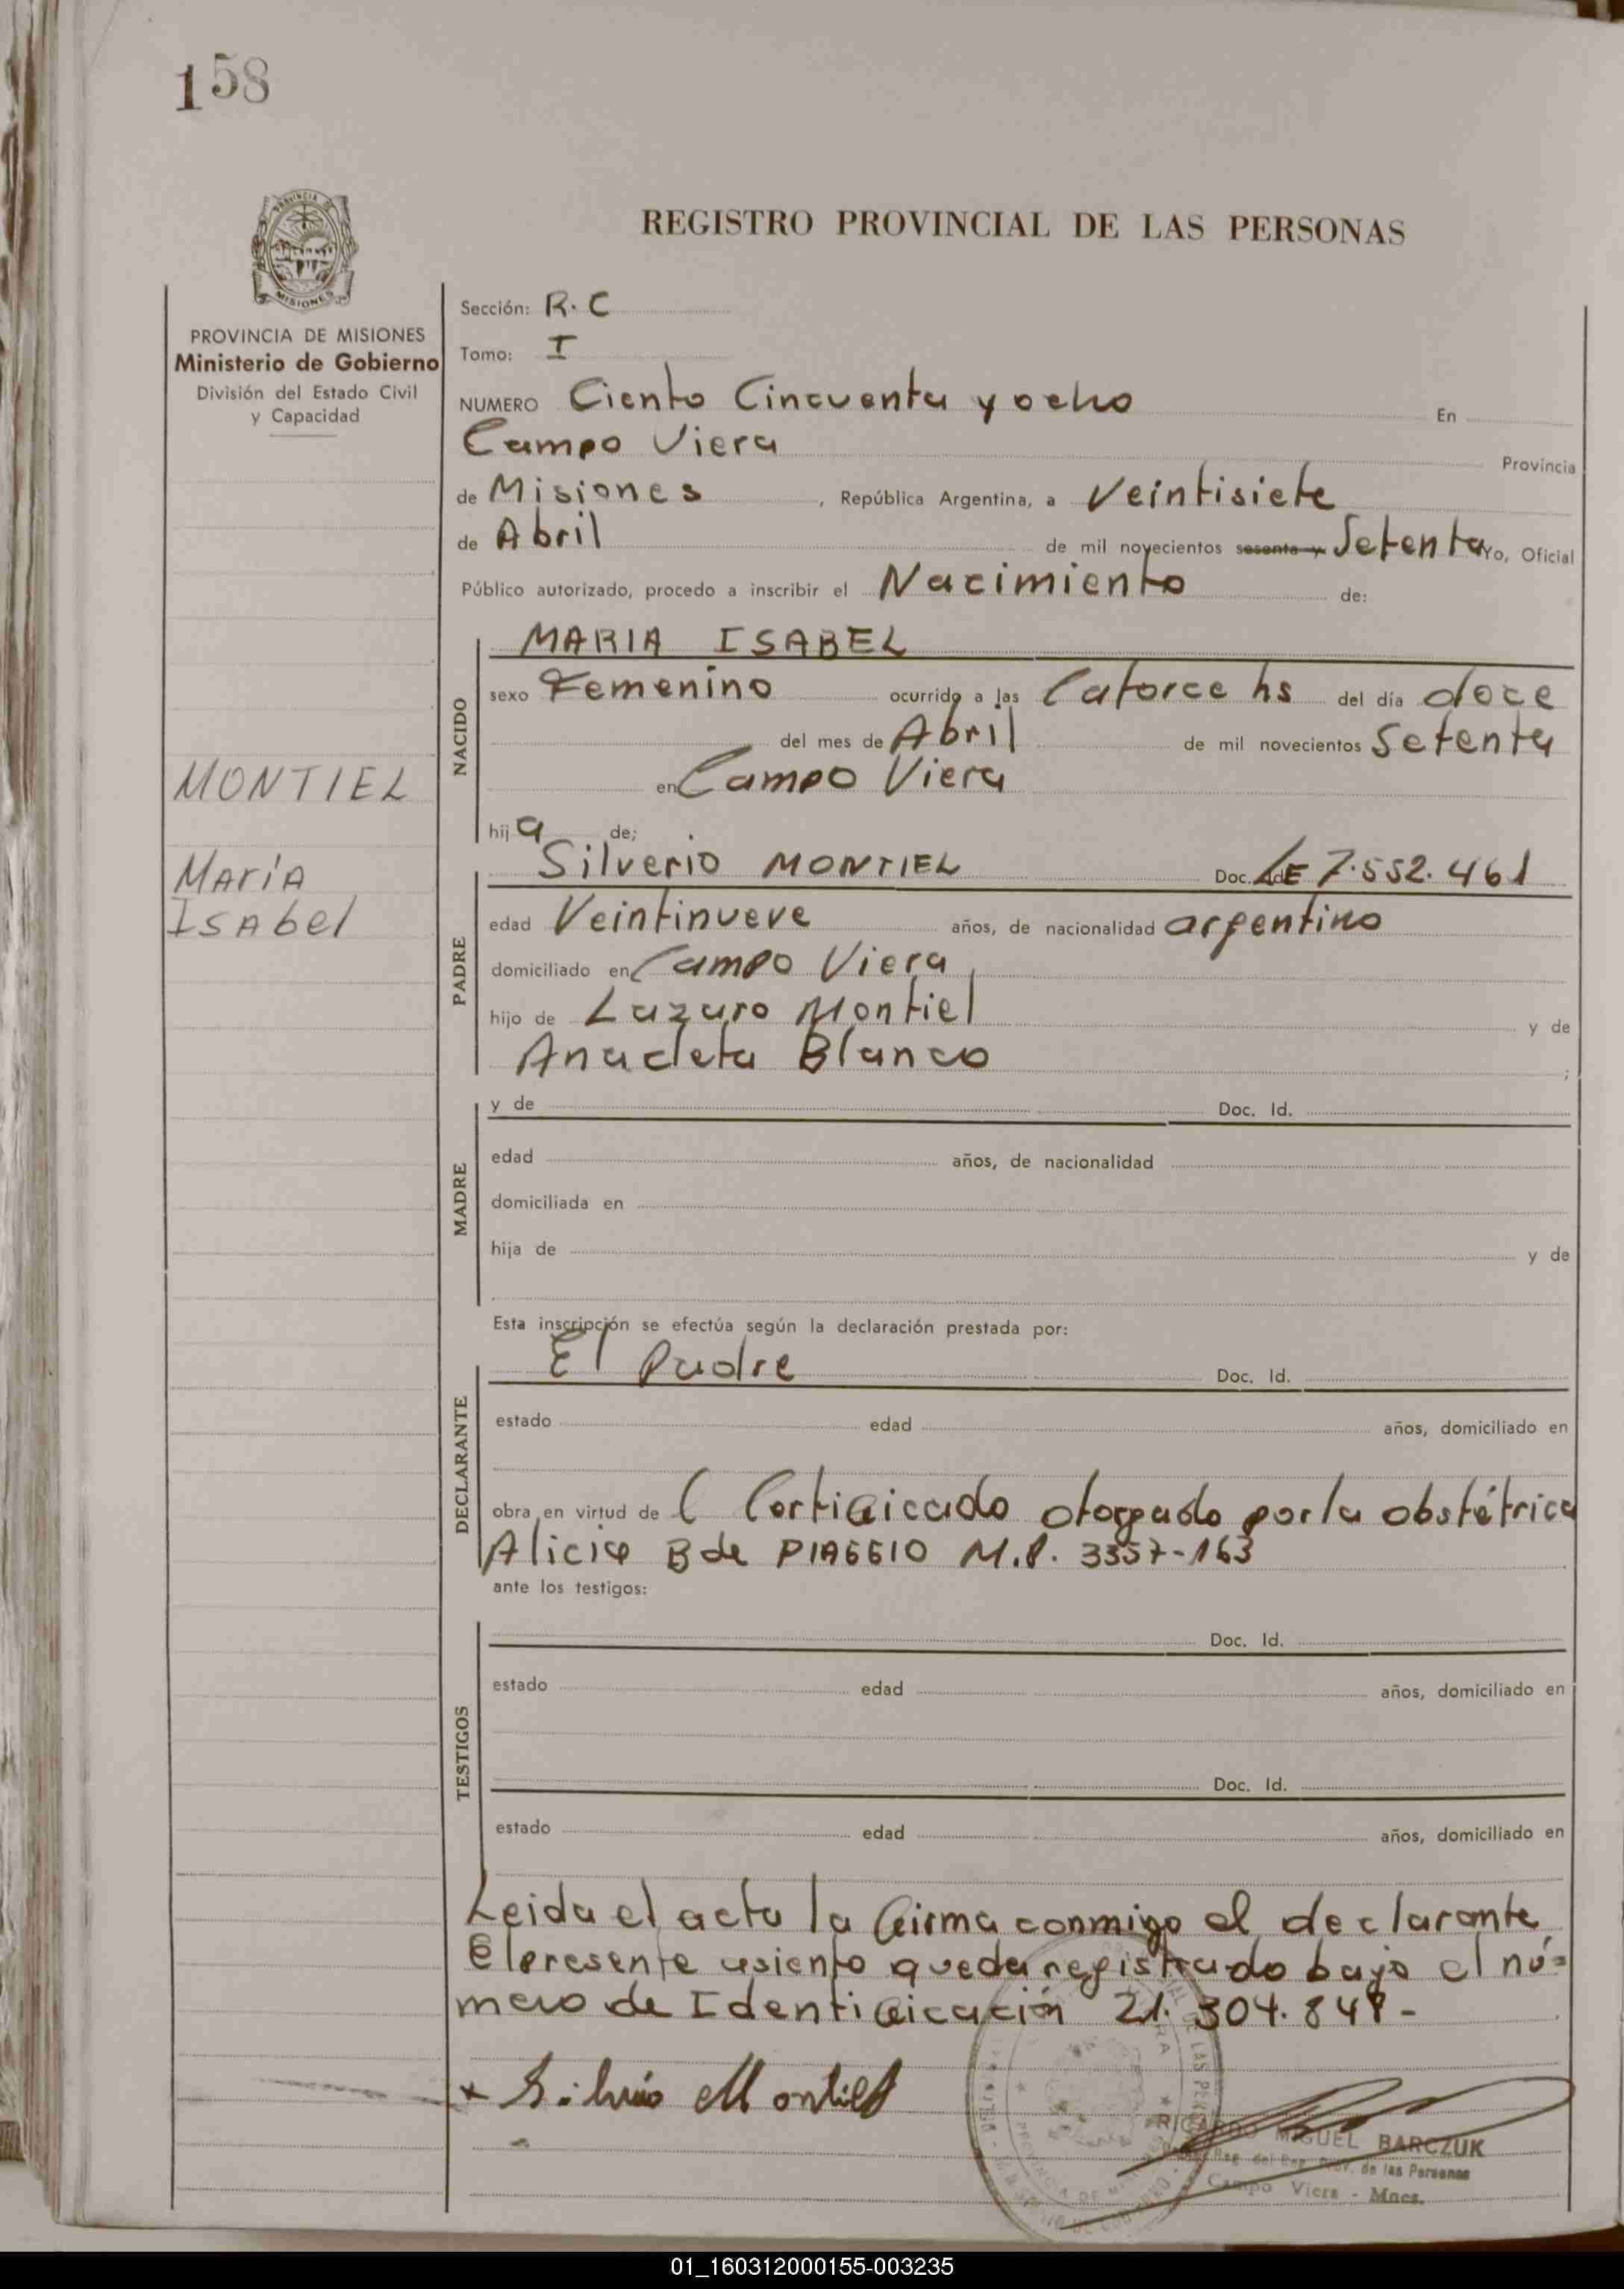 158
REGISTRO PROVINCIAL DE LAS PERSONAS
MISIONES
PROVINCIA DE MISIONES
Ministerio de Gobierno
División del Estado Civil
y Capacidad
Sección: R. C
Tomo: I
NUMERO Ciento Cincuenta y ocho En
Campo Viera Provincia
de Misiones, República Argentina, a Veintisiete
de Abril de mil novecientos sesenta y Setenta Yo, Oficial
Público autorizado, procedo a inscribir el Nacimiento de:
MONTIEL
María
Isabel
NACIDO
MARIA ISABEL
sexo Femenino ocurrido a las Catorce hs del día doce
del mes de Abril de mil novecientos Setenta
en Campo Viera
hija de;
PADRE
Silverio MONTIEL Doc. Id. LE 7.552.461
edad Veintinueve años, de nacionalidad argentino
domiciliado en Campo Viera
hijo de Lazaro Montiel y de
Anacleta Blanco ;
MADRE
y de Doc. Id.
edad años, de nacionalidad
domiciliada en
hija de y de
Esta inscripción se efectúa según la declaración prestada por:
DECLARANTE
El Padre Doc. Id.
estado edad años, domiciliado en
obra en virtud de Certificado otorgado por la obstétrica
Alicia B de PIAGGIO M.P. 3357-163
ante los testigos:
TESTIGOS
Doc. Id.
estado edad años, domiciliado en
Doc. Id.
estado edad años, domiciliado en
Leida el acta la firma conmigo el declarante
El presente asiento queda registrado bajo el nú=
mero de Identificación 21.304.848-
Montiel
RICARDO MIGUEL BARCZUK
Prov. de las Personas
Campo Viera - Mnes.
01_160312000155-003235